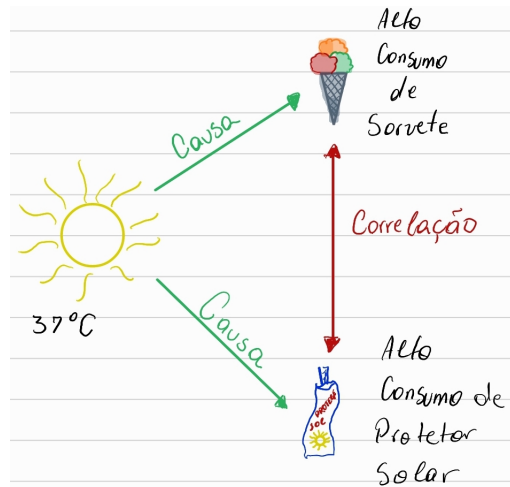 Alto
Consumo
de
Sorvete
Causa
Correlação
37°C
Causa
Alto
Consumo de
Protetor
Solar